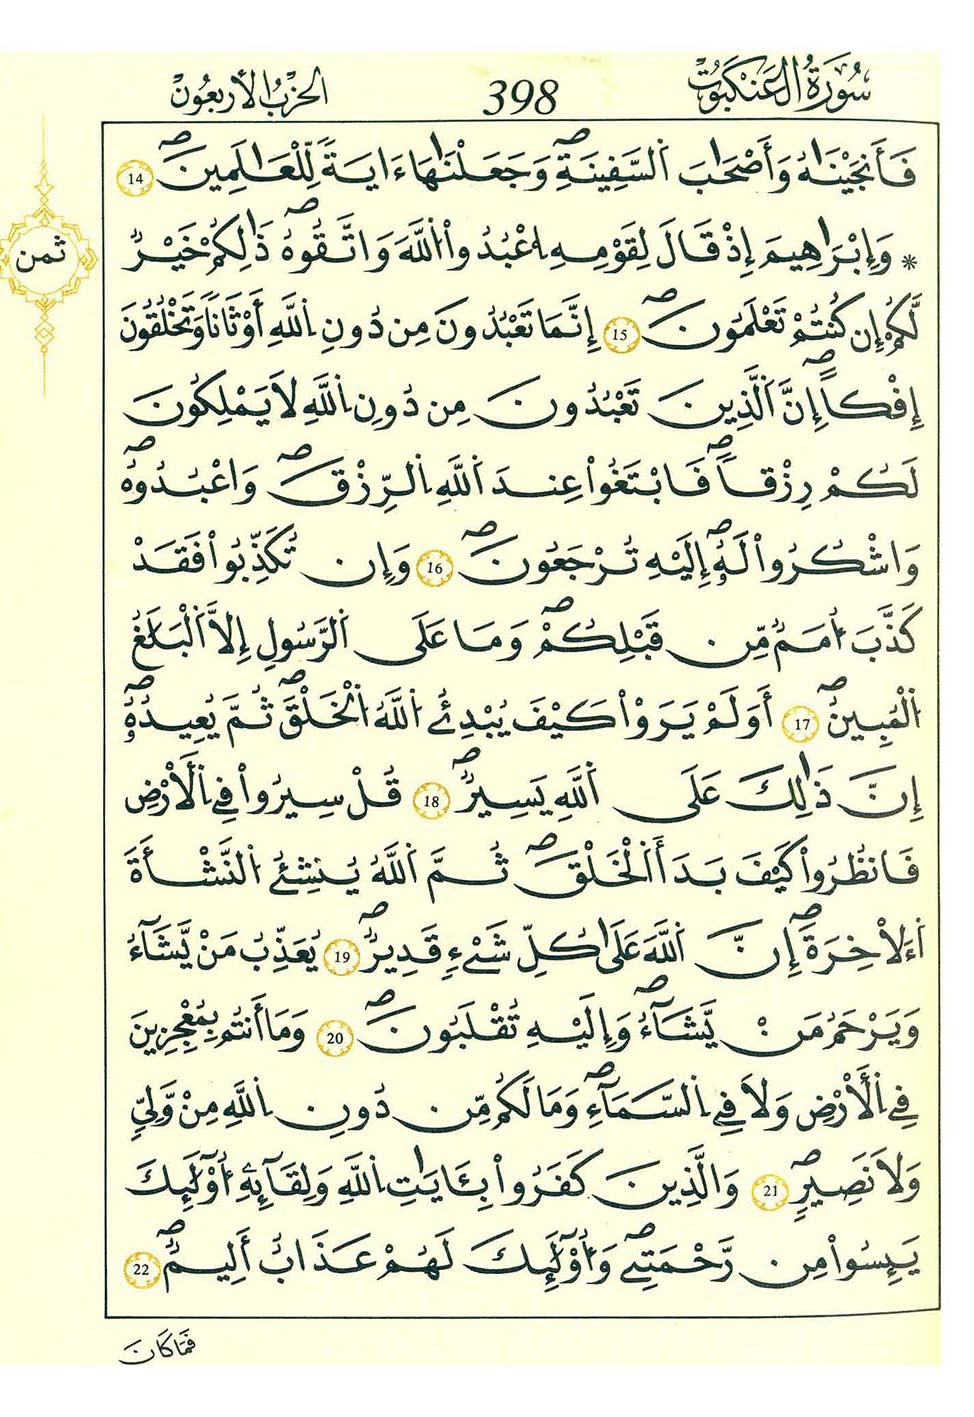 سُورَةُ الْعَنكَبُوتِ 398 الحِزْبُ الأَرْبَعُونَ
فَأَنجَيْنَٰهُ وَأَصْحَٰبَ اَ۬لسَّفِينَةِۖ وَجَعَلْنَٰهَا ءَايَةٗ لِّلْعَٰلَمِينَۖ 14
* وَإِبْرَٰهِيمَ إِذْ قَالَ لِقَوْمِهِ اِ۟عْبُدُواْ اُ۬للَّهَ وَاتَّقُوهُۖ ذَٰلِكُمْ خَيْرٞ
ثمن
لَّكُمْ إِن كُنتُمْ تَعْلَمُونَۖ 15 إِنَّمَا تَعْبُدُونَ مِن دُونِ اِ۬للَّهِ أَوْثَٰناٗ وَتَخْلُقُونَ
إِفْكاًۖ إِنَّ اَ۬لَّذِينَ تَعْبُدُونَ مِن دُونِ اِ۬للَّهِ لَا يَمْلِكُونَ
لَكُمْ رِزْقاٗۖ فَابْتَغُواْ عِندَ اَ۬للَّهِ اِ۬لرِّزْقَۖ وَاعْبُدُوهُۖ
وَاشْكُرُواْ لَهُۥٓۖ إِلَيْهِ تُرْجَعُونَۖ 16 وَإِن تُكَذِّبُواْ فَقَدْ
كَذَّبَ أُمَمٞ مِّن قَبْلِكُمْۖ وَمَا عَلَى اَ۬لرَّسُولِ إِلَّا اَ۬لْبَلَٰغُ
اُ۬لْمُبِينُۖ 17 أَوَلَمْ يَرَوْاْ كَيْفَ يُبْدِئُ اُ۬للَّهُ اُ۬لْخَلْقَۖ ثُمَّ يُعِيدُهُۥٓۖ
إِنَّ ذَٰلِكَ عَلَى اَ۬للَّهِ يَسِيرٞۖ 18 قُلْ سِيرُواْ فِے اِ۬لْأَرْضِ
فَانظُرُواْ كَيْفَ بَدَأَ اَ۬لْخَلْقَۖ ثُمَّ اَ۬للَّهُ يُنشِئُ اُ۬لنَّشْأَةَ
اَ۬لْأٓخِرَةَۖ إِنَّ اَ۬للَّهَ عَلَىٰ كُلِّ شَےْءٖ قَدِيرٞۖ 19 يُعَذِّبُ مَنْ يَّشَآءُ
وَيَرْحَمُ مَنْ يَّشَآءُۖ وَإِلَيْهِ تُقْلَبُونَۖ 20 وَمَا أَنتُم بِمُعْجِزِينَ
فِے اِ۬لْأَرْضِ وَلَا فِے اِ۬لسَّمَآءِۖ وَمَا لَكُم مِّن دُونِ اِ۬للَّهِ مِنْ وَّلِيّٖ
وَلَا نَصِيرٖۖ 21 وَالَّذِينَ كَفَرُواْ بِـَٔايَٰتِ اِ۬للَّهِ وَلِقَآئِهِۦٓ أُوْلَٰٓئِكَ
يَئِسُواْ مِن رَّحْمَتِےۖ وَأُوْلَٰٓئِكَ لَهُمْ عَذَابٌ أَلِيمٞۖ 22
فَمَا كَانَ